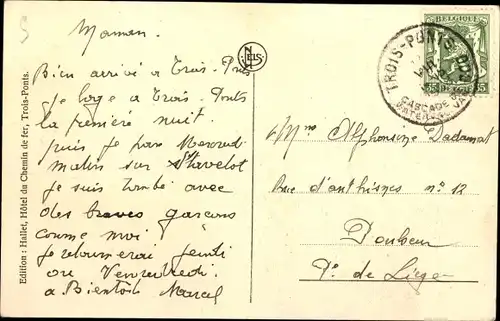 Maman.
Bien arrivé à Trois-Ponts
je loge à Trois-Ponts
la première nuit.
puis je pars Mercredi
matin sur Stavelot
je suis tombé avec
des braves garçons
comme moi!
je retournerai jeudi
ou Vendredi.
à Bientôt Marcel
NELS
Edition: Hallet, Hôtel du Chemin de fer, Trois-Ponts.
BELGIQUE
35 35
TROIS-PONTS
CASCADE DE
Mme Alphonsine Dadamat
Rue d'anthisnes n° 12
Poulseur
Pce de Liège